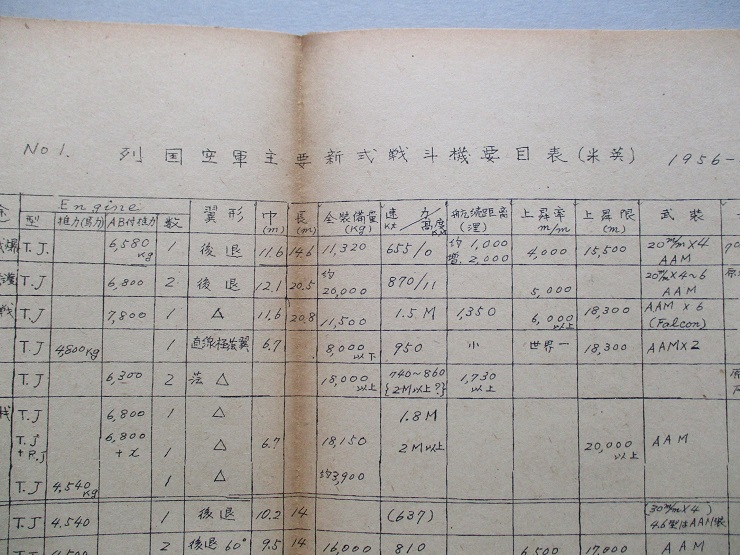 No 1. 列国空軍主要新式戦斗機要目表(米英) 1956-
Engine 翼形 巾(m) 長(m) 全装備量(Kg) 速力Kt/高度Km 航続距離(浬) 上昇率m/m 上昇限(m) 武装
型 推力(馬力) AB付推力 数
T.J. 6,580Kg 1 後退 11.6 14.6 11,320 655/0 約1,000 増.2,000 4,000 15,500 20m/m×4 AAM
T.J 6,800 2 後退 12.1 20.5 約20,000 870/11 5,000 20m/m×4~6 AAM
T.J 7,800 1 △ 11.6 20.8 11,500 1.5M 1,350 6,000以上 18,300 AAM×6 (Falcon)
T.J 4,800Kg 1 直線極薄翼 6.7 8,000以下 950 小 世界一 18,300 AAM×2
T.J 6,300 2 薄△ 18,000以上 740~860 {2M以上?} 1,730以上
T.J 6,800 1 △ 1.8M
T.J + R.J 6,800 + x 1 △ 6.7 18,150 2M以上 20,000以上 AAM
T.J 4,540Kg 1 △ 約3,900
T.J 4,540 1 後退 10.2 14 (637) (30m/m×4)
2 後退60° 9.5 14 16,000 810 6,500 17,000 AAM